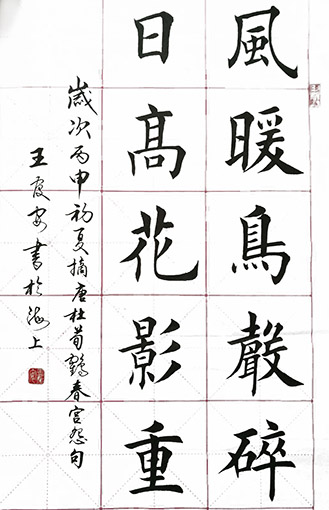 風暖鳥聲碎
日高花影重
歲次丙申初夏摘唐杜荀鶴春宮怨句
王霞安書於海上